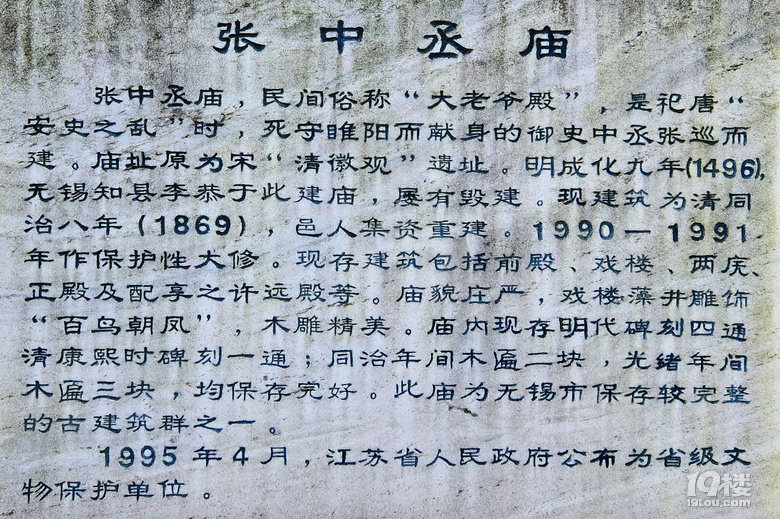 张中丞庙
张中丞庙，民间俗称“大老爷殿”，是祀唐“
安史之乱”时，死守睢阳而献身的御史中丞张巡而
建。庙址原为宋“清微观”遗址。明成化九年(1496),
无锡知县李恭于此建庙，屡有毁建。现建筑为清同
治八年(1869)，邑人集资重建。1990—1991
年作保护性大修。现存建筑包括前殿、戏楼、两庑、
正殿及配享之许远殿等。庙貌庄严，戏楼藻井雕饰
“百鸟朝凤”，木雕精美。庙内现存明代碑刻四通
清康熙时碑刻一通；同治年间木匾二块，光绪年间
木匾三块，均保存完好。此庙为无锡市保存较完整
的古建筑群之一。
1995年4月，江苏省人民政府公布为省级文
物保护单位。
19楼
19lou.com